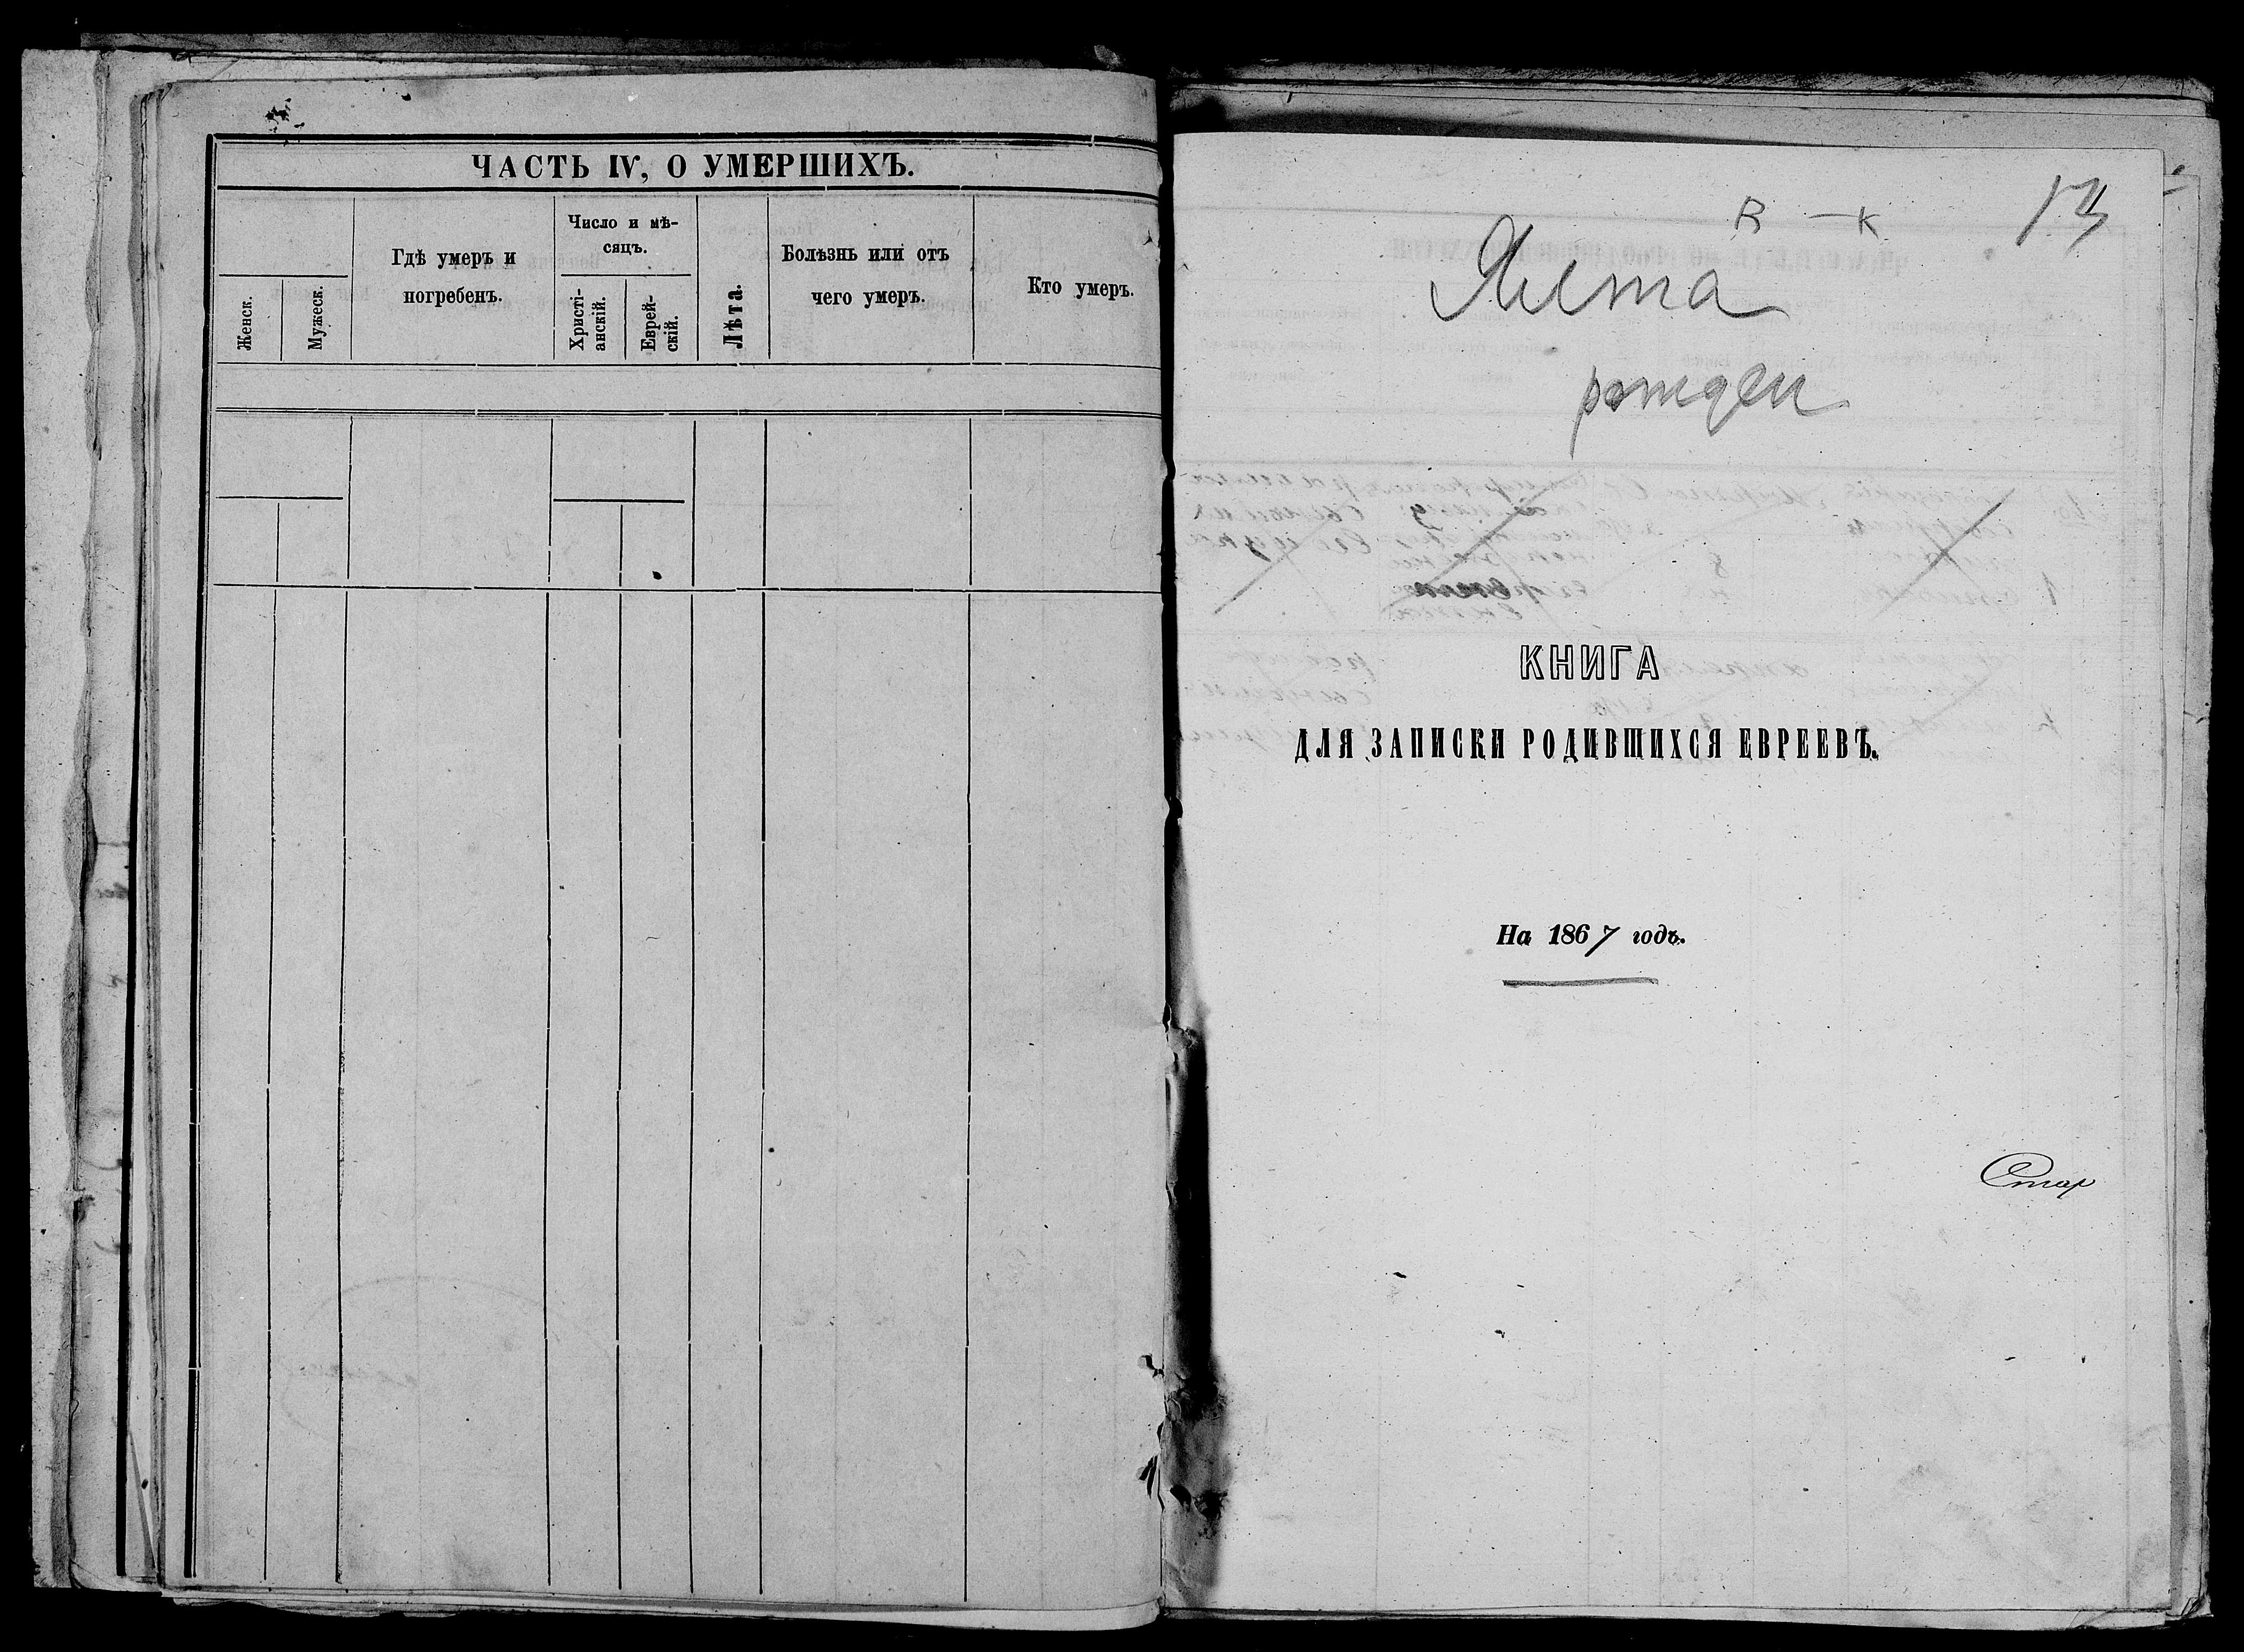 ЧАСТЬ IV, О УМЕРШИХЪ.
Женск.
Мужеск.
Гдѣ умеръ и
погребенъ.
Число и мѣ-
сяцъ.
Христі-
анскій.
Еврей-
скій.
Лѣта.
Болѣзнь или отъ
чего умеръ.
Кто умеръ.
13
R — K
Ялта
рожден
КНИГА
ДЛЯ ЗАПИСКИ РОДИВШИХСЯ ЕВРЕЕВЪ.
На 1867 годъ.
Стар